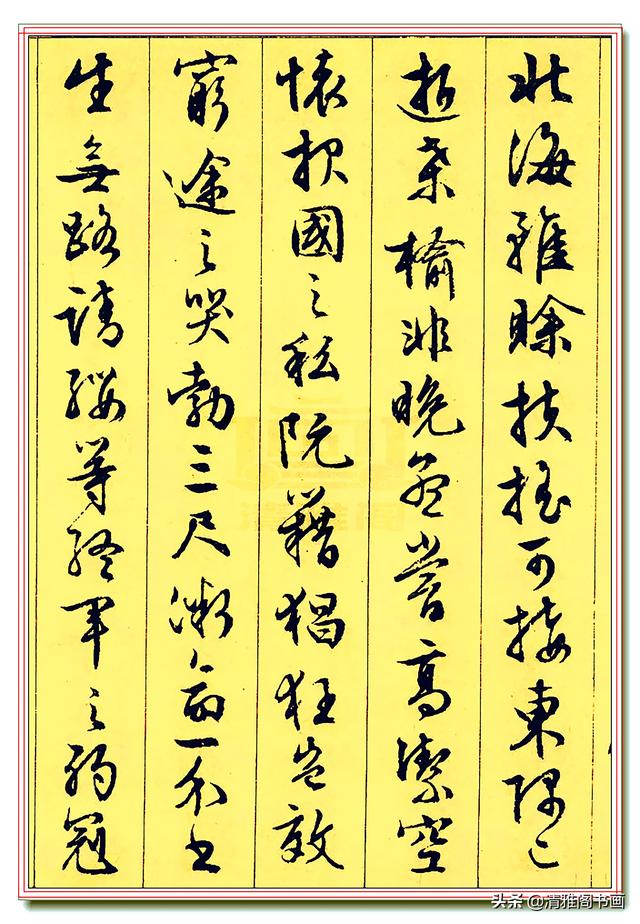 北海雖賒扶搖可接東隅已
逝桑榆非晚孟嘗高潔空
懷報國之私阮籍猖狂豈效
窮途之哭勃三尺微命一介書
生無路請纓等終軍之弱冠
清雅阁
头条 @清雅阁书画